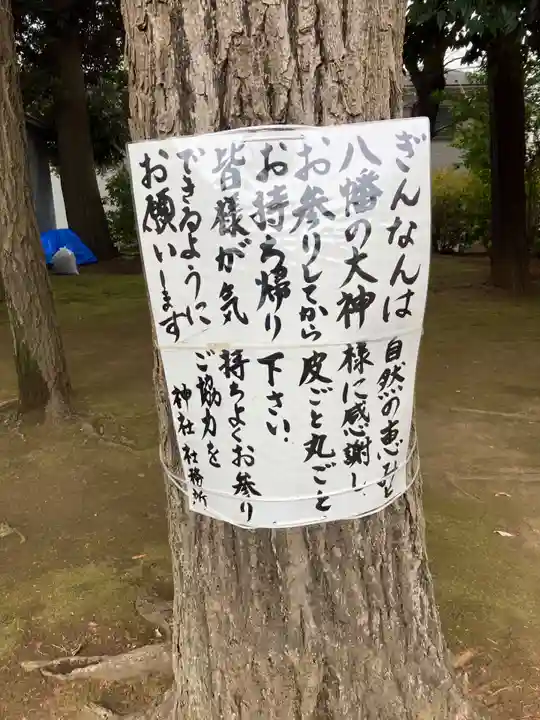 ぎんなんは自然の恵みを
八幡の大神様に感謝し、
お参りしてから皮ごと丸ごと
お持ち帰り下さい。
皆様が気持ちよくお参り
できるようにご協力を
お願いします
神社社務所